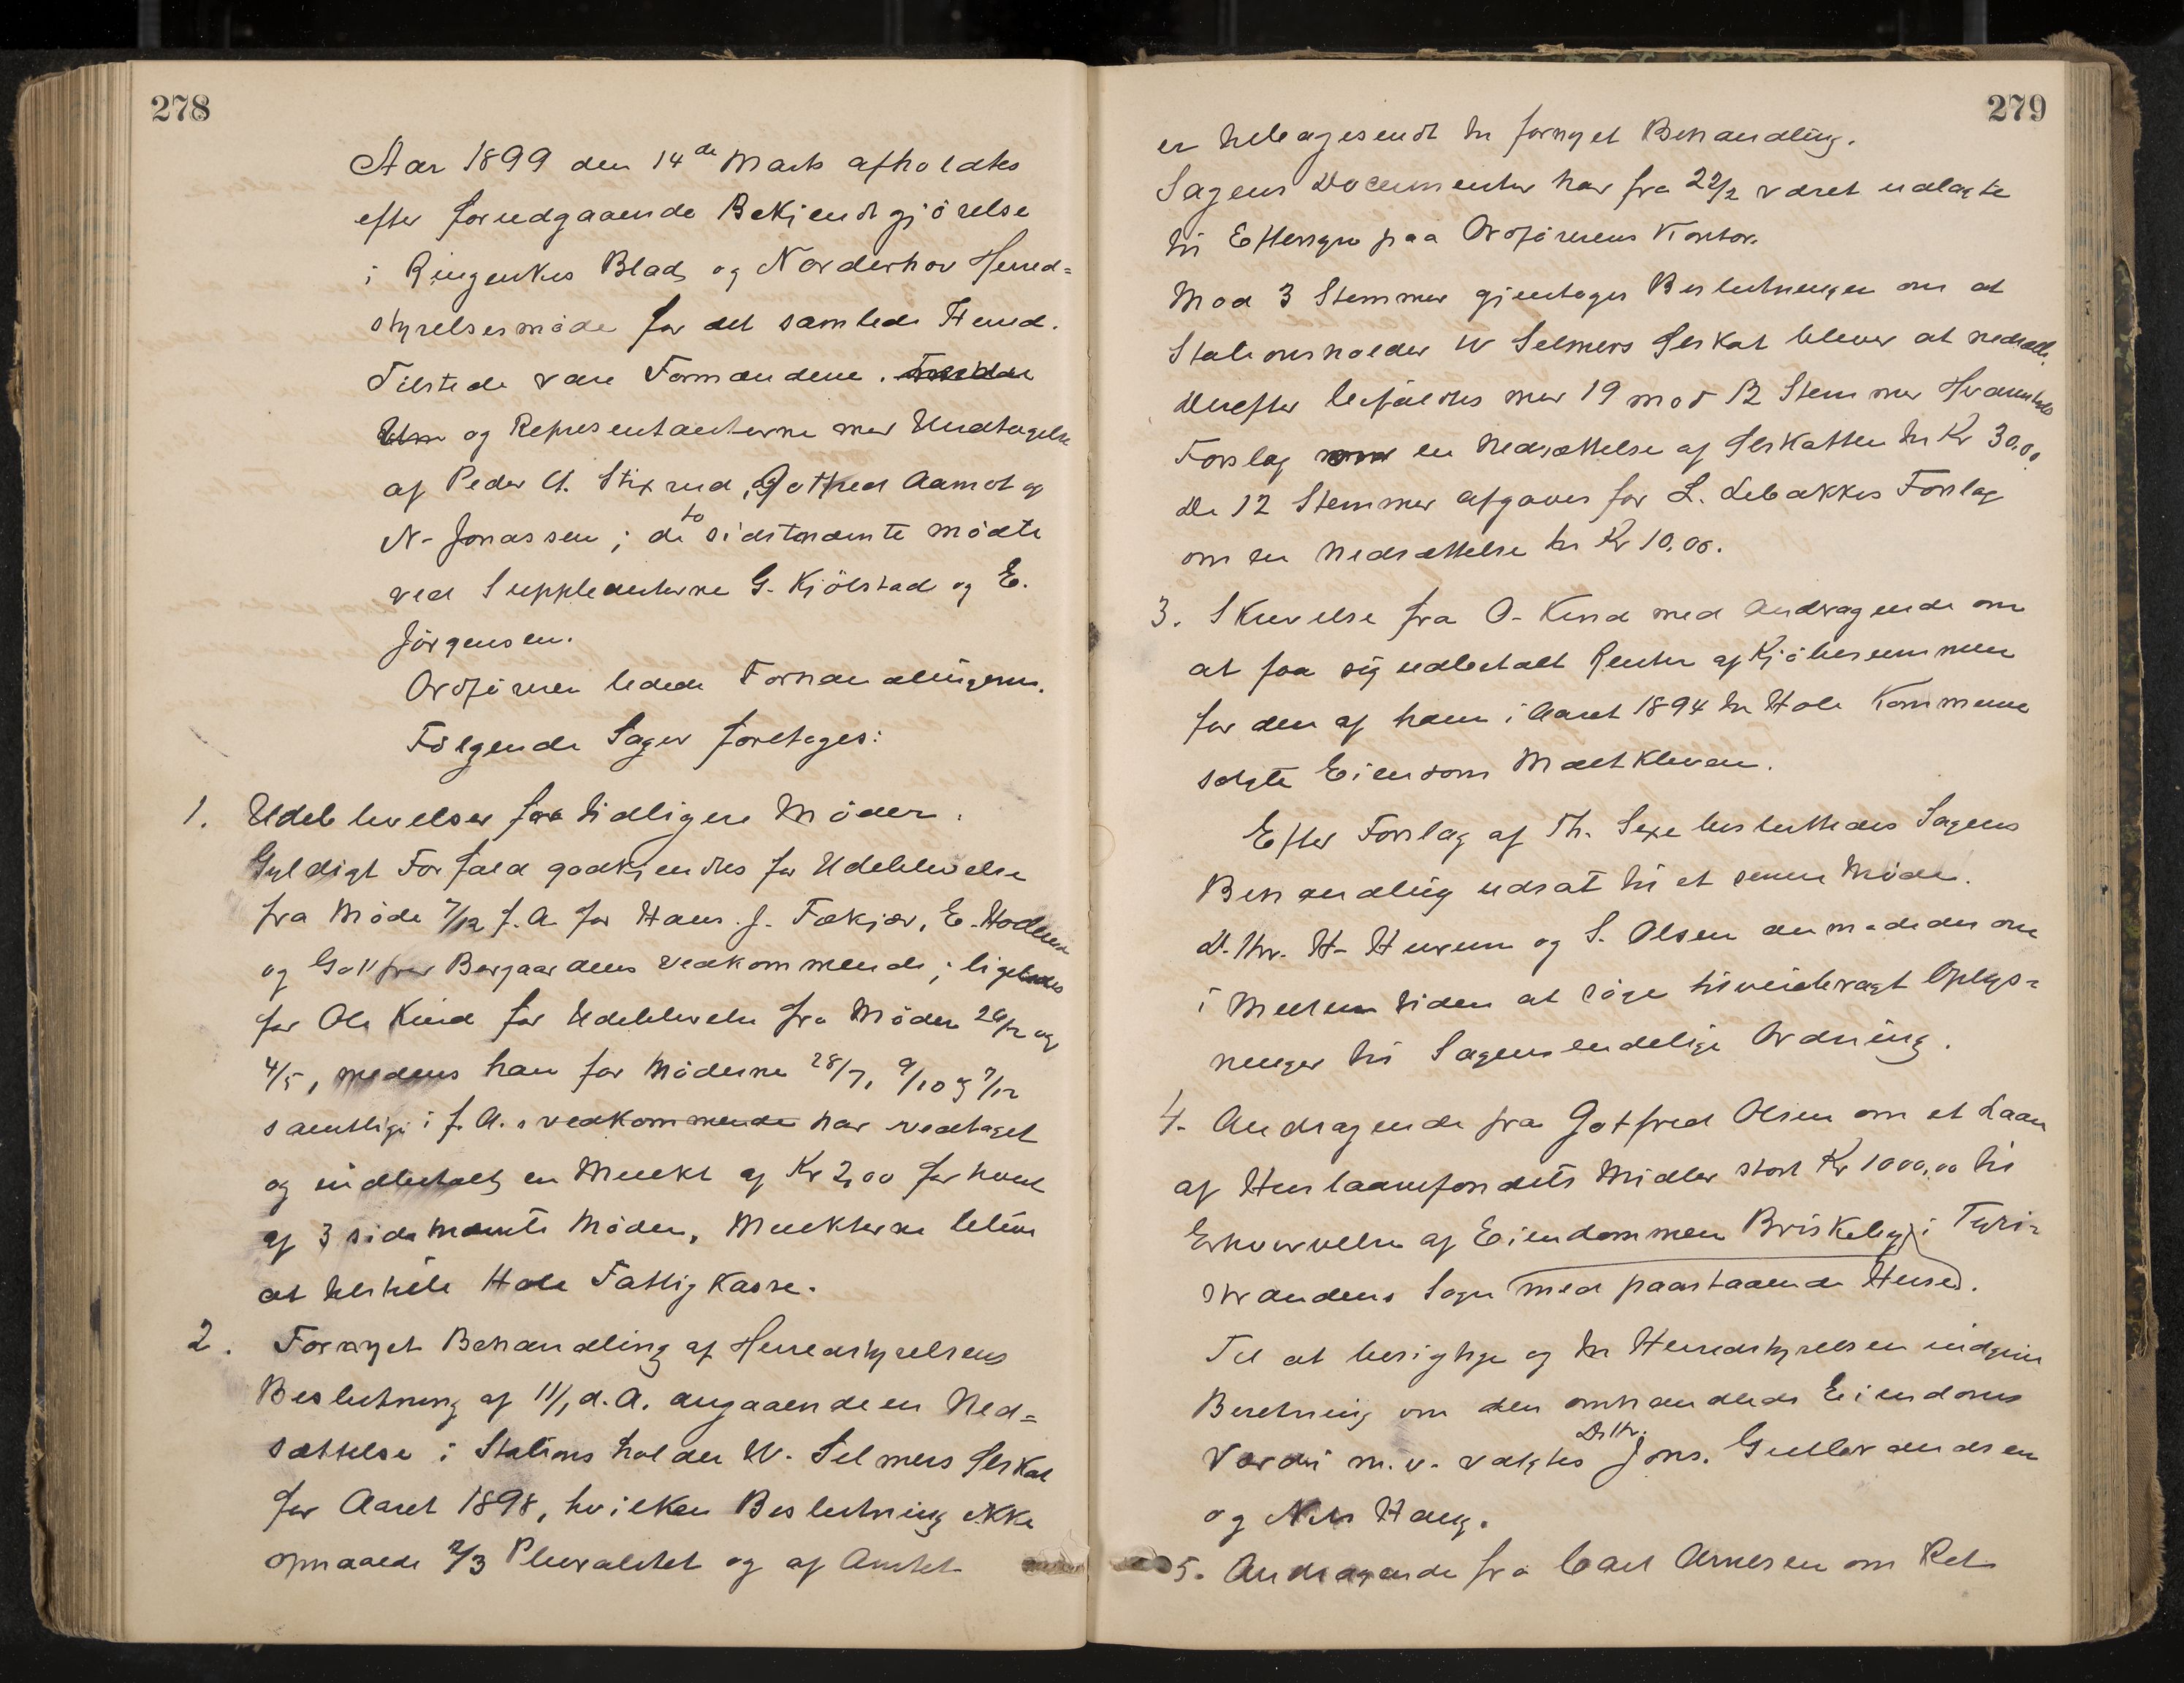 278
Aar 1899 den 14de Marts afholdtes
efter forudgaaende Bekjendtgjörelse
i Ringerikes Blad og Norderhov Herred=
styrelsesmöde for det samlede Herred.
Tilstede vare Formændene.
og Repræsentanterne med Undtagelse
af Peder A. Stixrud, Gotfred Aamot og
N. Jonassen; de to sidstnævnte mödte
ved Suppleanterne G. Kjölstad og E.
Jörgensen.
Ordföreren ledede Forhandlingerne.
Fölgende Sager foretoges:
1. Udeblevelser fra tidligere Möder.
Gyldigt Forfald godkjendtes for Udeblevelse
fra Möde 7/12 f. A. for Hans J. Fækjær, E.
og Gottfred Borgaardens Vedkommende; ligeledes
for Ole Kind for Udeblevelse fra Möder 26/2 og
4/5, medens han for Möderne 28/7, 9/10 og 7/12
samtlige i f. A.s vedkommende har vedtaget
og indbetalt en Mulkt af Kr 2,00 for hvert
af 3 sidstnævnte Möder. Mulkterne bliver
at tilstille Hole Fattigkasse.
2. Fornyet Behandling af Herredstyrelsens
Beslutning af 11/1 d. A. angaaende en Ned=
sættelse i Stationsholder W. Selmers Skat
for Aaret 1898, hvilken Beslutning ikke
opnaaede 2/3 Pluralitet og af Amtet
279
er tilbagesendt til fornyet Behandling.
Sagens Documenter har fra 22/2 været udlagte
til Eftersyn paa Ordförerens Kontor.
Mod 3 Stemmer gjentoges Beslutningen om at
Stationsholder W Selmers Skat bliver at nedsætte.
Derefter bifaldtes med 19 mod 12 Stemmer
Forslag om en Nedsættelse af Skatten til Kr 30,00.
De 12 Stemmer afgaves for L. Libakkes Forslag
om en Nedsættelse til Kr 10,00.
3. Skrivelse fra O. Kind med Andragende om
at faa sig udbetalt Renter af Kjöbesummen
for den af ham i Aaret 1894 til Hole Kommune
solgte Eiendom Maltkleven.
Efter Forslag af Th. Sexe besluttedes Sagens
Behandling udsat til et senere Möde.
D'Hr. H. Hurum og S. Olsen anmodedes om
i Mellemtiden at söge tilveiebragt Oplys=
ninger til Sagens endelige Ordning.
4. Andragende fra Gotfred Olsen om et Laan
af Huslaanefondets Midler stort Kr 1000,00 til
Erhvervelse af Eiendommen Briskeby i Tyri=
strandens Sogn (med paastaaende Huse).
Til at besigtige og til Herredstyrelsen indgive
Beretning om den omhandlede Eiendoms
Værdi m. v. valgtes D'Hr. Johs. Gulbrandsen
og Nils Haug.
5. Andragende fra Carl Arnesen om Ret